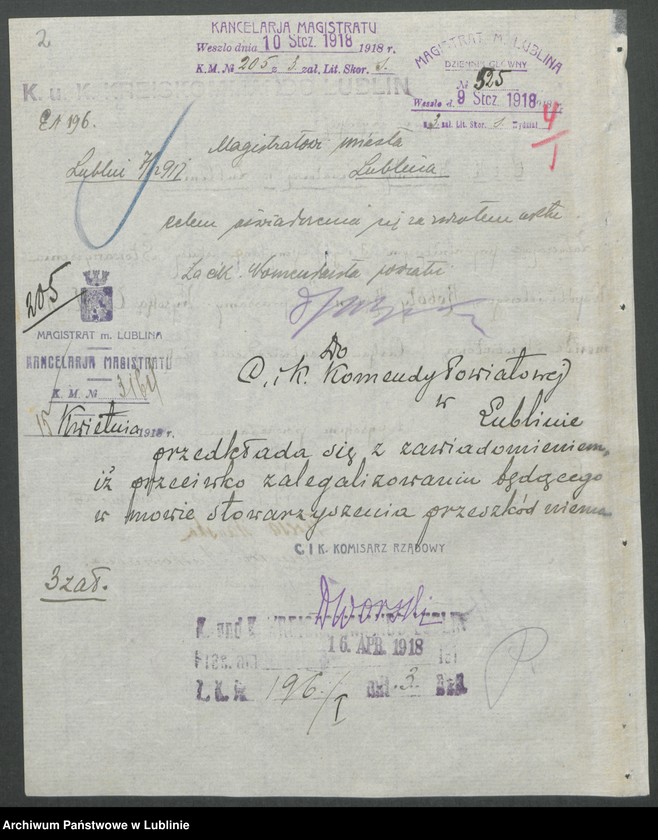 2
KANCELARJA MAGISTRATU
Weszło dnia 10 Stcz. 1918 1918 r.
K. M. № 205 3 zał. Lit. Skor. s.
MAGISTRAT M. LUBLINA
DZIENNIK GŁÓWNY
№ 525
Weszło d. 9 Stcz. 1918
zał. Lit. Skor. s Wydział
4/I
K. u. K. KREISKOMMANDO LUBLIN
196.
Magistratowi miasta
Lublina
Lublin
celem oświadczenia się za zwrotem aktu
C. i k. Komendanta powiatu
205
MAGISTRAT m. LUBLINA
KANCELARJA MAGISTRATU
K. M. №
15 Kwietnia 1918 r.
Do
C. i K. Komendy Powiatowej
w
Lublinie
przedkłada się z zawiadomieniem,
iż przeciwko zalegalizowaniu będącego
w mowie stowarzyszenia przeszkód niema
C. I K. KOMISARZ RZĄDOWY
3 zał.
K. und K. KREISKOMMANDO LUBLIN
16. APR. 1918
196/I mit 3
Archiwum Państwowe w Lublinie